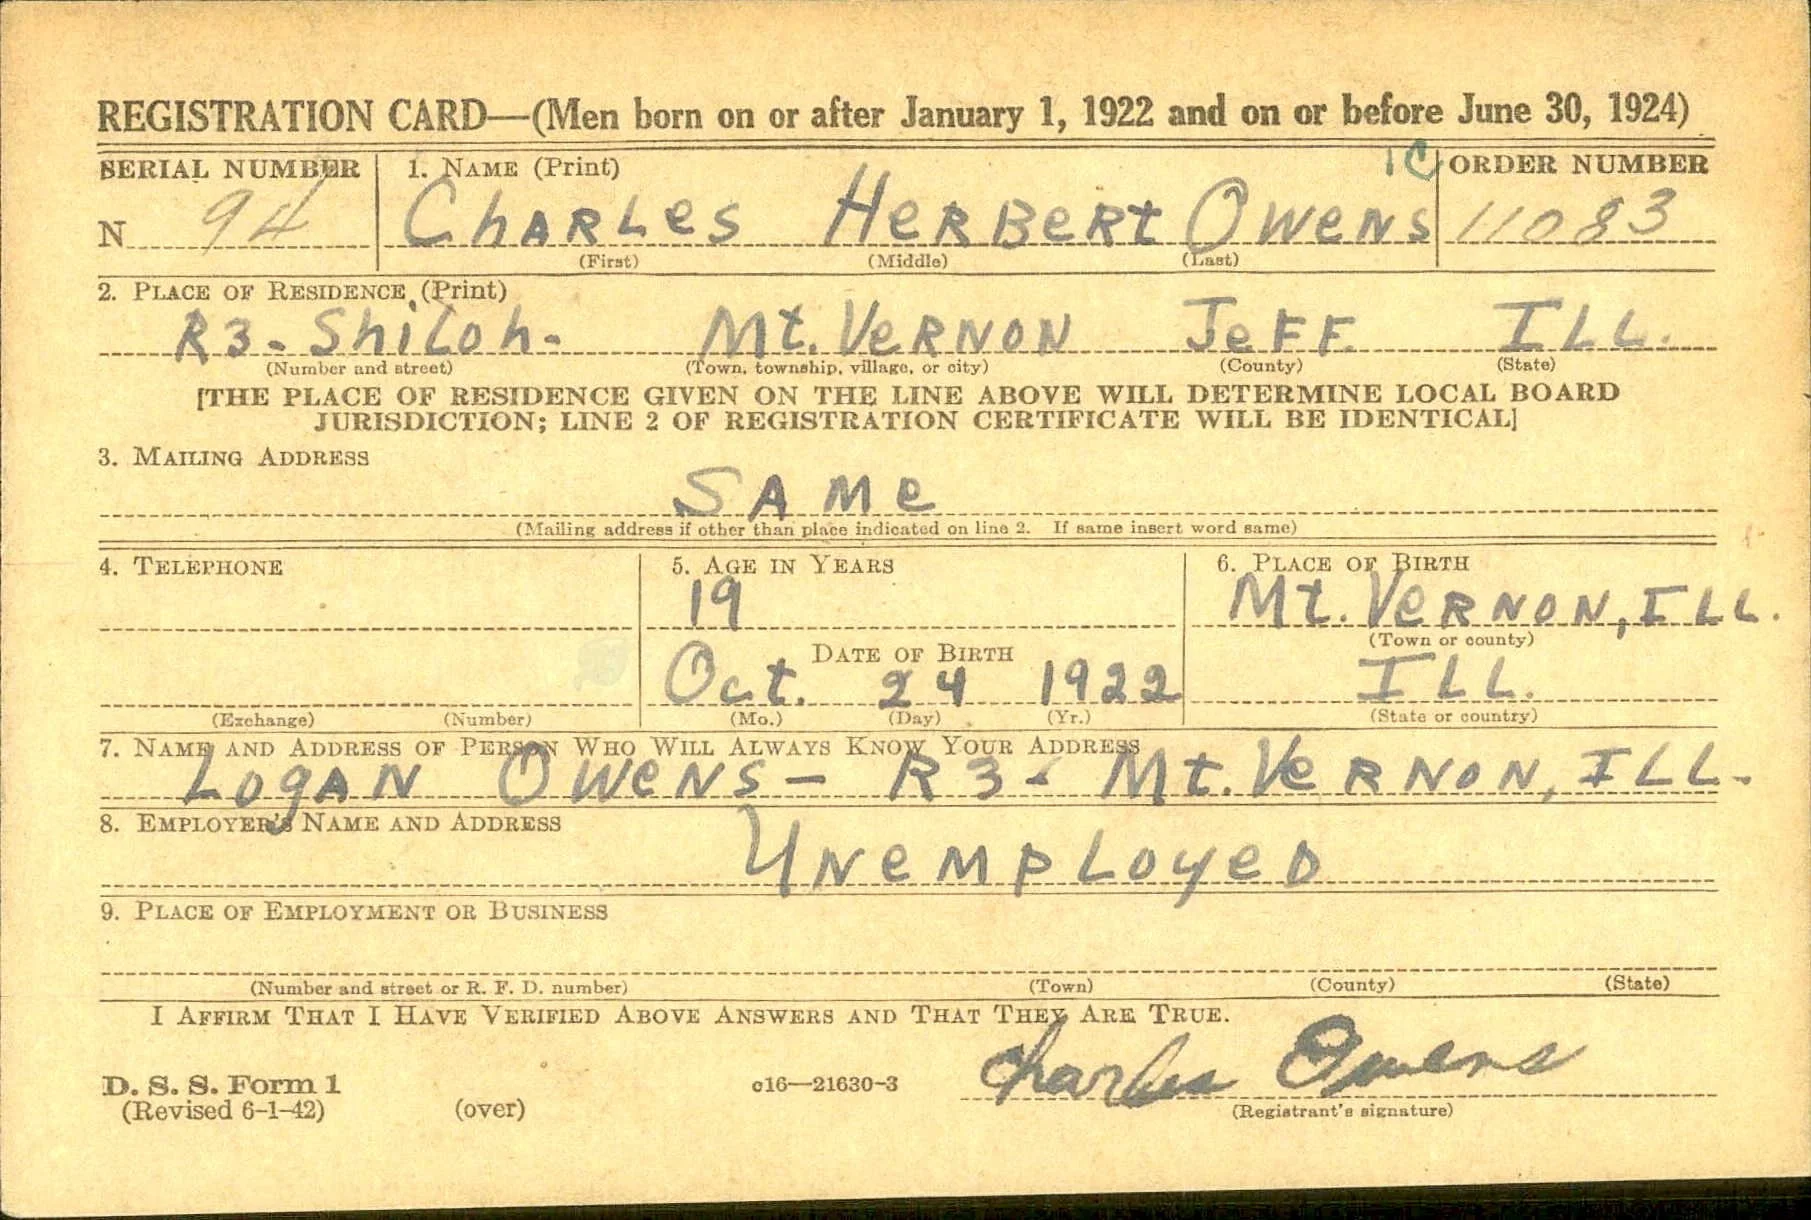 REGISTRATION CARD—(Men born on or after January 1, 1922 and on or before June 30, 1924)
SERIAL NUMBER 1. NAME (Print) 1C ORDER NUMBER
N 94 CHARLes HeRBeRt OWeNS 11083
(First) (Middle) (Last)
2. PLACE OF RESIDENCE (Print)
R3- ShiLoh- Mt. VeRNON JeFF. ILL.
(Number and street) (Town, township, village, or city) (County) (State)
[THE PLACE OF RESIDENCE GIVEN ON THE LINE ABOVE WILL DETERMINE LOCAL BOARD
JURISDICTION; LINE 2 OF REGISTRATION CERTIFICATE WILL BE IDENTICAL]
3. MAILING ADDRESS
SAMe
(Mailing address if other than place indicated on line 2. If same insert word same)
4. TELEPHONE 5. AGE IN YEARS 6. PLACE OF BIRTH
19 Mt. VeRNON, ILL.
(Town or county)
DATE OF BIRTH
Oct. 24 1922 ILL.
(Exchange) (Number) (Mo.) (Day) (Yr.) (State or country)
7. NAME AND ADDRESS OF PERSON WHO WILL ALWAYS KNOW YOUR ADDRESS
LogAN OWeNS- R3- Mt. VeRNON, ILL.
8. EMPLOYER'S NAME AND ADDRESS
UNeMpLoyeD
9. PLACE OF EMPLOYMENT OR BUSINESS
(Number and street or R. F. D. number) (Town) (County) (State)
I AFFIRM THAT I HAVE VERIFIED ABOVE ANSWERS AND THAT THEY ARE TRUE.
Charles Owens
D. S. S. Form 1 c16—21630-3
(Revised 6-1-42) (over) (Registrant's signature)